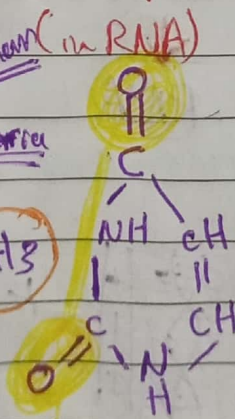 (in RNA)
O
C
NH CH
C CH
O N
H